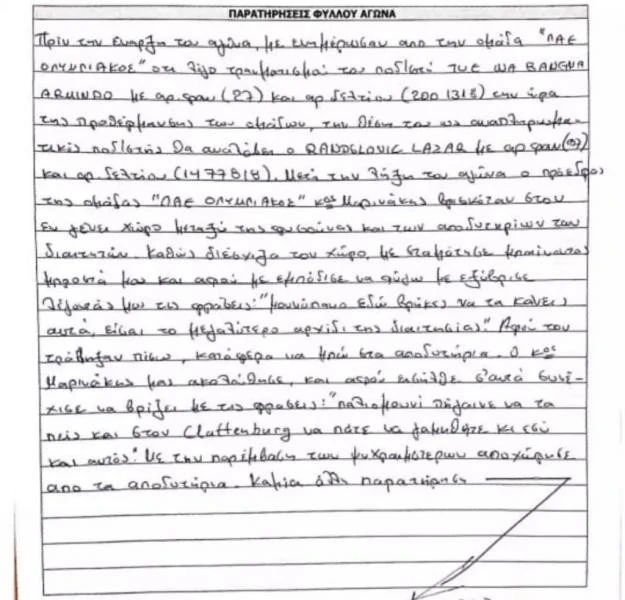 ΠΑΡΑΤΗΡΗΣΕΙΣ ΦΥΛΛΟΥ ΑΓΩΝΑ
Πριν την έναρξη του αγώνα, με ενημέρωσαν απο την ομάδα "ΠΑΕ
ΟΛΥΜΠΙΑΚΟΣ" οτι λόγο τραυματισμού του ποδ/στή του Κ WA BANGNA
ARMINDO με αρ.φαν (27) και αρ.δελτίου (2001318) την ώρα
της προθέρμανσης των ομάδων, την θέση του ως αναπληρωμα-
τικός ποδ/στής θα αναλάβει ο RANDELOVIC LAZAR με αρ φαν (97)
και αρ. δελτίου (1477818). Μετά την λήξη του αγώνα ο πρόεδρος
της ομάδας "ΠΑΕ ΟΛΥΜΠΙΑΚΟΣ" κος Μαρινάκης βρισκόταν στον
εν γένει χώρο μεταξύ της φυσούνας και των αποδυτηρίων των
διαιτητών. Καθώς διέσχιζα τον χώρο, με σταμάτησε μπαίνοντας
μπροστά μου και αφού με εμπόδισε να φύγω με εξύβρισε
λέγοντάς μου τις φράσεις: "μουνόπανο εδώ βρήκες να τα κάνεις
αυτά, είσαι το μεγαλύτερο αρχίδι της διαιτησίας." Αφού τον
τράβηξαν πίσω, κατάφερα να μπω στα αποδυτήρια. Ο κος
Μαρινάκης μας ακολούθησε, και αφού εισήλθε σ'αυτά συνέ-
χισε να βρίζει με τις φράσεις: "παλιομουνί πήγαινε να τα
πεις και στον Clattenburg να πάτε να γαμηθήτε κι εσύ
και αυτός." Με την παρέμβαση των ψυχραιμότερων αποχώρησε
απο τα αποδυτήρια. Καμία άλλη παρατήρηση